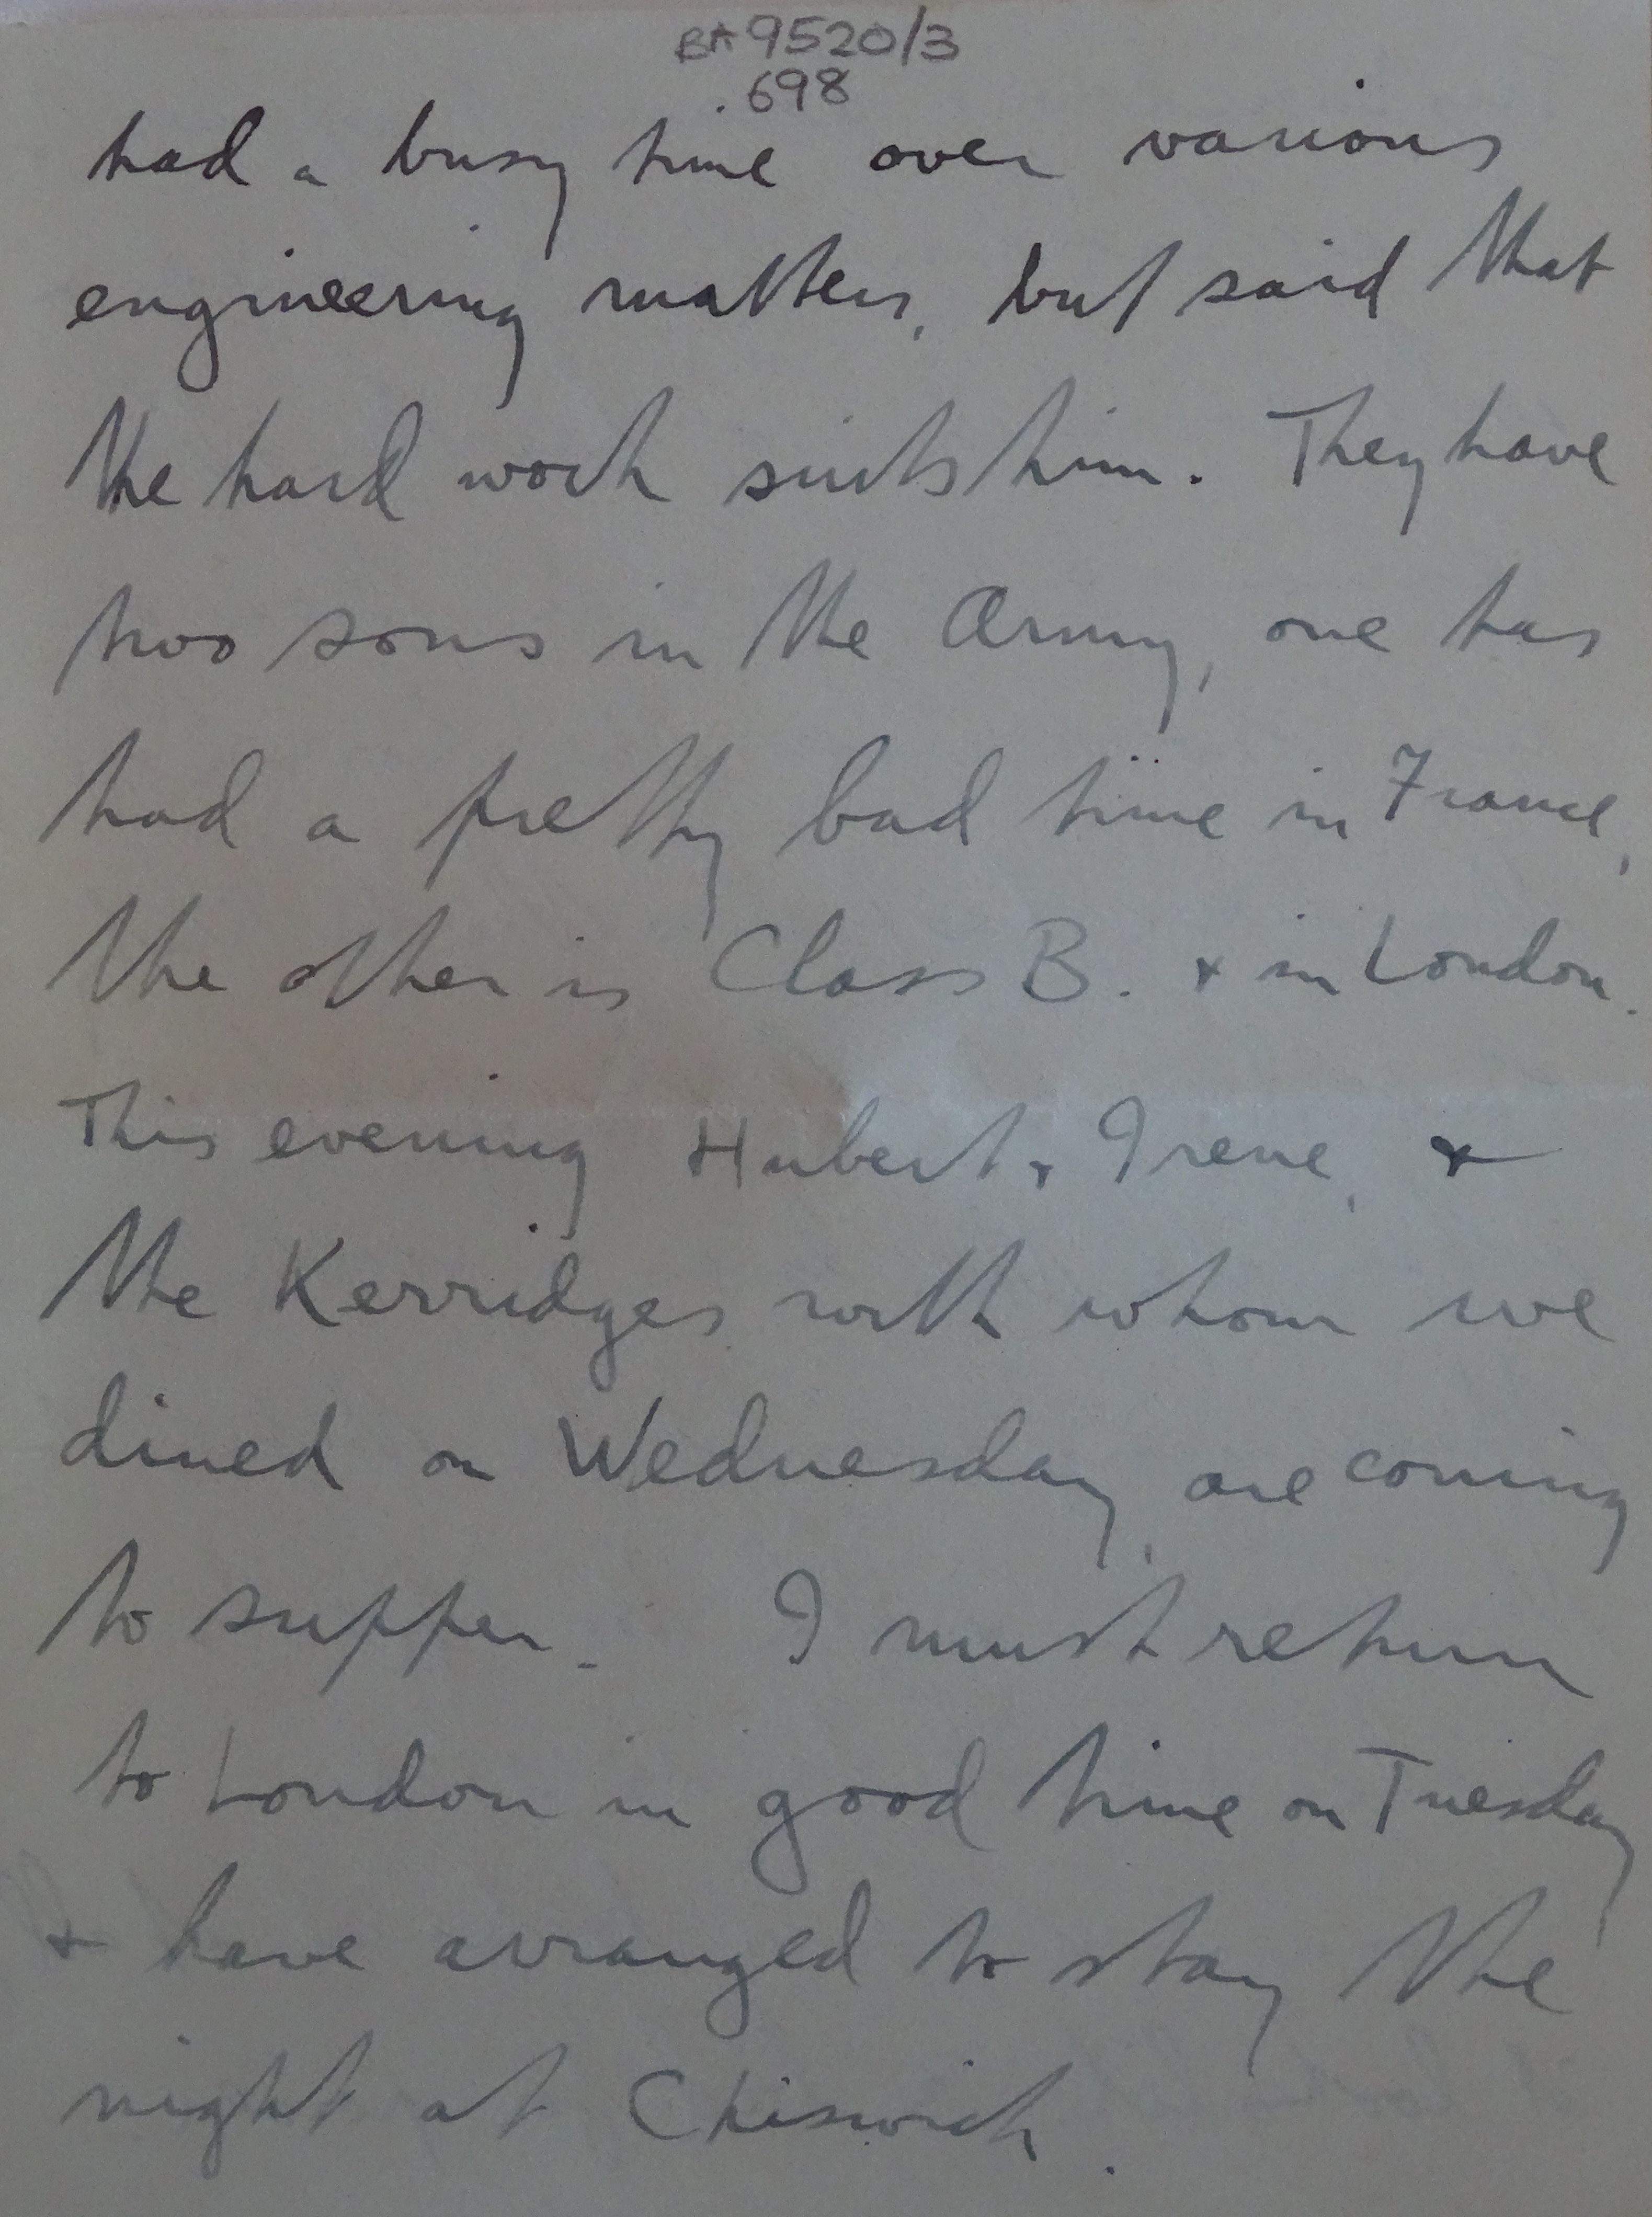 BA 9520/3
.698
had a busy time over various
engineering matters, but said that
the hard work suits him. They have
two sons in the Army, one has
had a pretty bad time in France,
the other is Class B. & in London.
This evening Hubert & Irene, &
the Kerridges with whom we
dined on Wednesday, are coming
to supper. I must return
to London in good time on Tuesday
& have arranged to stay the
night at Chiswick.